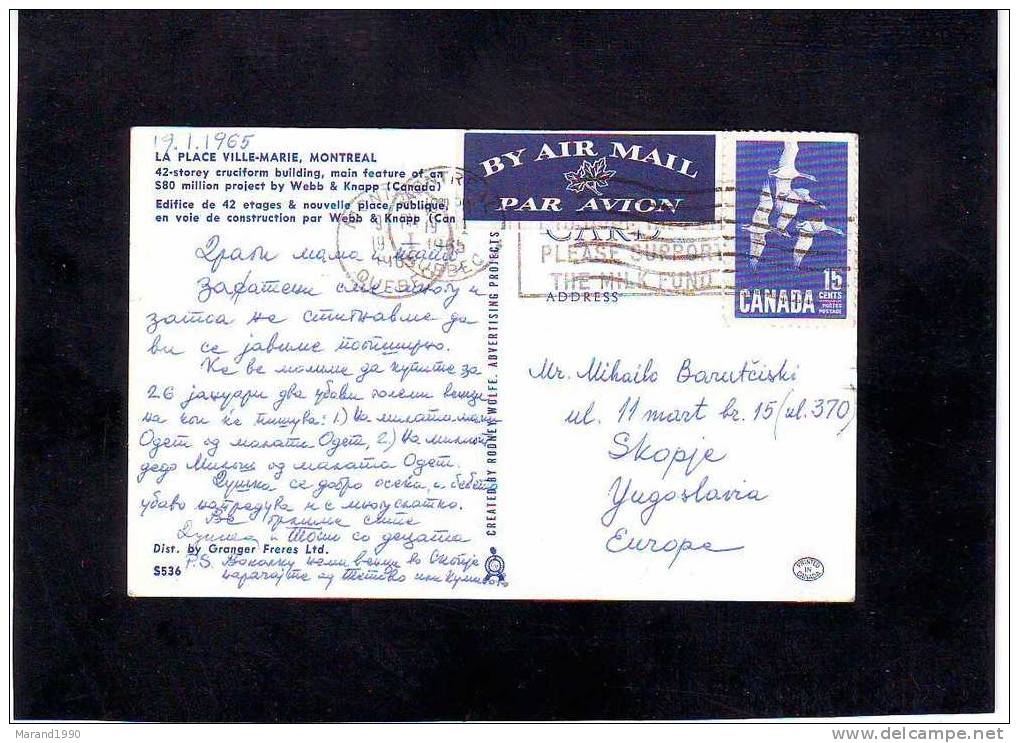 19.1.1965
LA PLACE VILLE-MARIE, MONTREAL
42-storey cruciform building, main feature of an
$80 million project by Webb & Knapp (Canada)
Edifice de 42 etages & nouvelle place publique,
en voie de construction par Webb & Knapp (Can
Драги мама и тато
Зафатени сме многу и
затоа не стигнавме да
ви се јавиме поопширно.
Ќе ве молиме да купите за
26 јануари два убави големи венци
на кои ќе пишува: 1) На милата мама
Одет од малата Одет, 2) На милиот
дедо од малата Одет.
Душка се добро осеќа, и бебето
убаво напредува и е многу слатко.
Ве сите
и Тошо со децата
Dist. by Granger Freres Ltd.
P.S. нема венци во Скопје
нарачајте од Тетово или Куманово
S536
CREATED BY RODNEY WOLFE, ADVERTISING PROJECTS
BY AIR MAIL
PAR AVION
MONTREAL
19
1965
QUEBEC
CARD
PLEASE SUPPORT
THE MILK FUND
ADDRESS
15
CENTS
CANADA
POSTES
POSTAGE
Mr. Mihailo Barutčiski
ul. 11 mart br. 15 (ul. 370)
Skopje
Yugoslavia
Europe
PRINTED
IN
CANADA
Marand1990
delcampe.net